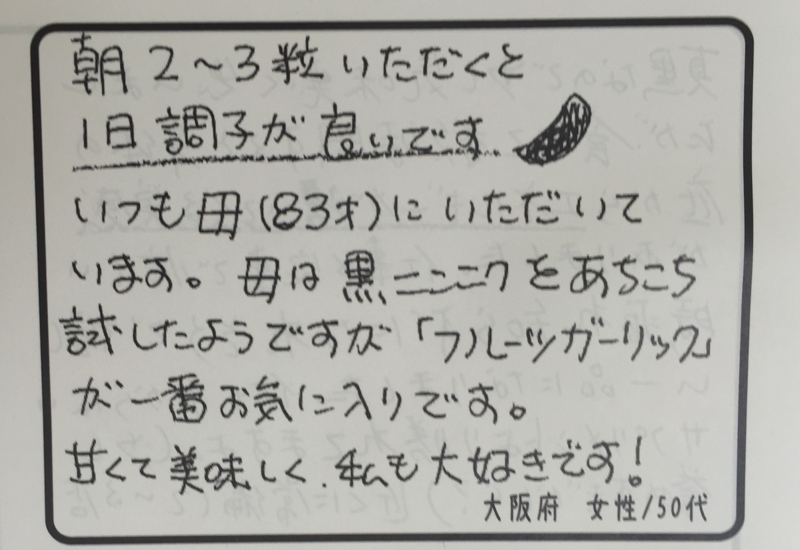 朝 2〜3粒 いただくと
1日 調子が 良いです
いつも 母(83才)に いただいて
います。 母は 黒ニンニクを あちこち
試したようですが 「フルーツガーリック」
が 一番 お気に入りです。
甘くて 美味しく、私も 大好きです!
大阪府 女性/50代